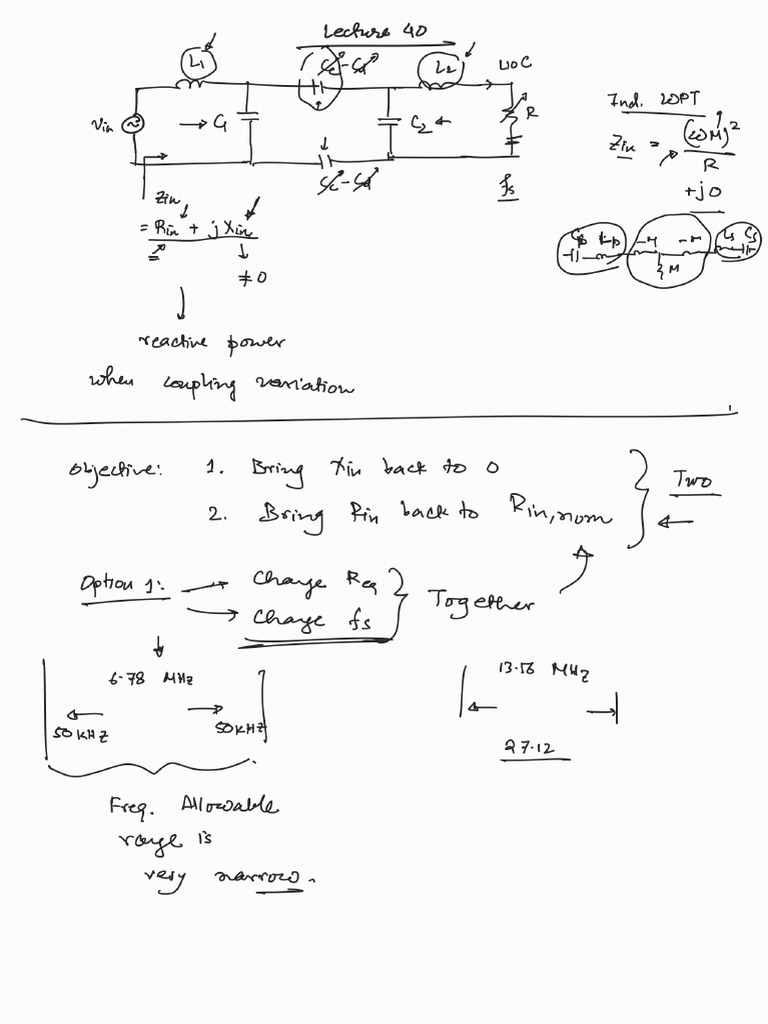 Lecture 40
L₁
Cc - Cd
L2
Vin
C₁
C2
R
Zin
= Rin + j Xin
≠ 0
Cc - Cd
fs
Ind. WPT
Zin = (ωM)² / R
+ j0
Cp Lp -M -M Ls Cs
M
reactive power
when coupling variation
Objective: 1. Bring Xin back to 0
2. Bring Rin back to Rin,nom
Two
Option 1: Change Req
Change fs
Together
6.78 MHz
50 KHZ 50 KHZ
13.56 MHZ
27.12
Freq. Allowable
range is
very narrow.